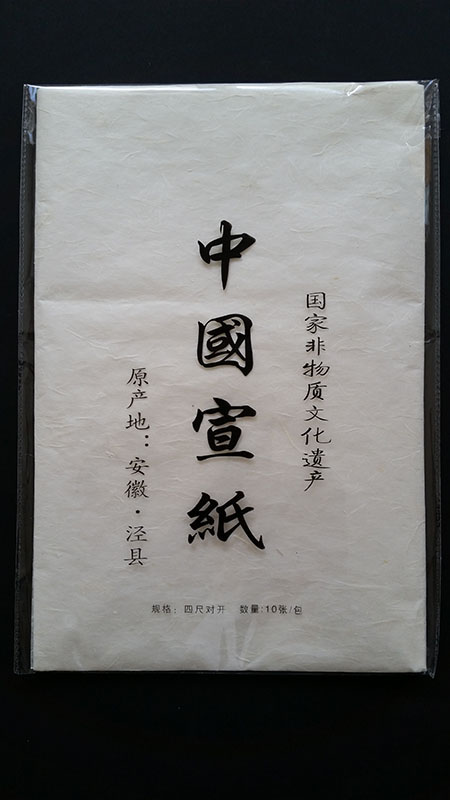 国家非物质文化遗产
中國宣紙
原产地：安徽·泾县
规格：四尺对开 数量：10张/包